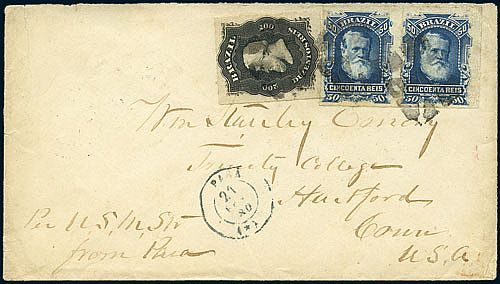 BRAZIL 200 200 SEIS
50 BRAZIL 50
CINCOENTA REIS
50 50
50 BRAZIL 50
CINCOENTA REIS
50 50
Wm Stanley Emery
Trinity College
Hartford
Conn
U.S.A.
Per U.S.M. Str
from Para
PARA
21
80
(*)